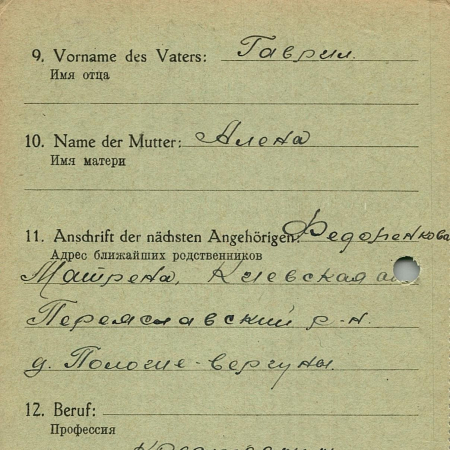 9. Vorname des Vaters: Гаврил.
Имя отца
10. Name der Mutter: Алена
Имя матери
11. Anschrift der nächsten Angehörigen: Федоренкова
Адрес ближайших родственников
Матрена, Киевская
Переяславский р-н.
д. Пологие-вергуны.
12. Beruf:
Профессия